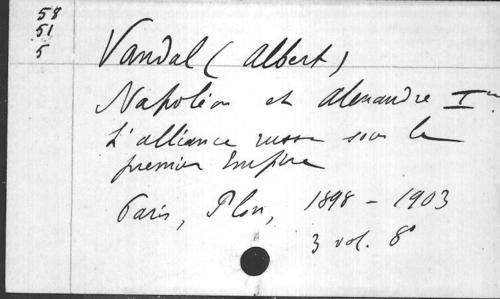 58
51
5
Vandal (Albert)
Napoléon et Alexandre Ier
L'alliance russe sous le
premier Empire
Paris, Plon, 1898 - 1903
3 vol. 8°